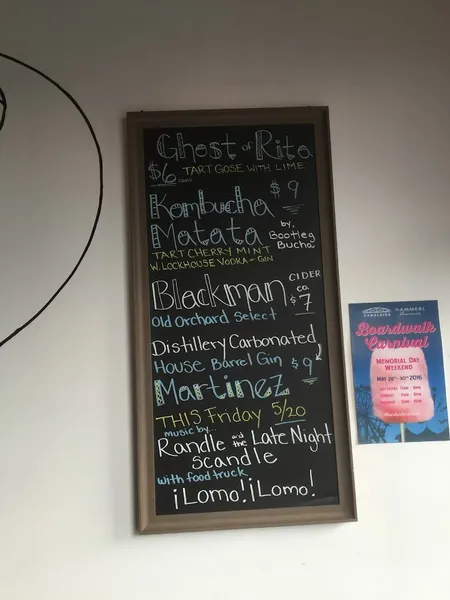 Ghost of Rita
$6 TART GOSE WITH LIME
Kombucha $9
Matata by. Bootleg Bucha
TART CHERRY MINT
W. LOCKHOUSE VODKA - GIN
Blackman CIDER co. $7
Old Orchard Select
Distillery Carbonated
House Barrel Gin $9
Martinez
THIS Friday 5/20
music by...
Randle and the Late Night
Scandle
with food truck
¡Lomo! ¡Lomo!
CANALSIDE
Boardwalk
Carnival
MEMORIAL DAY
WEEKEND
2016